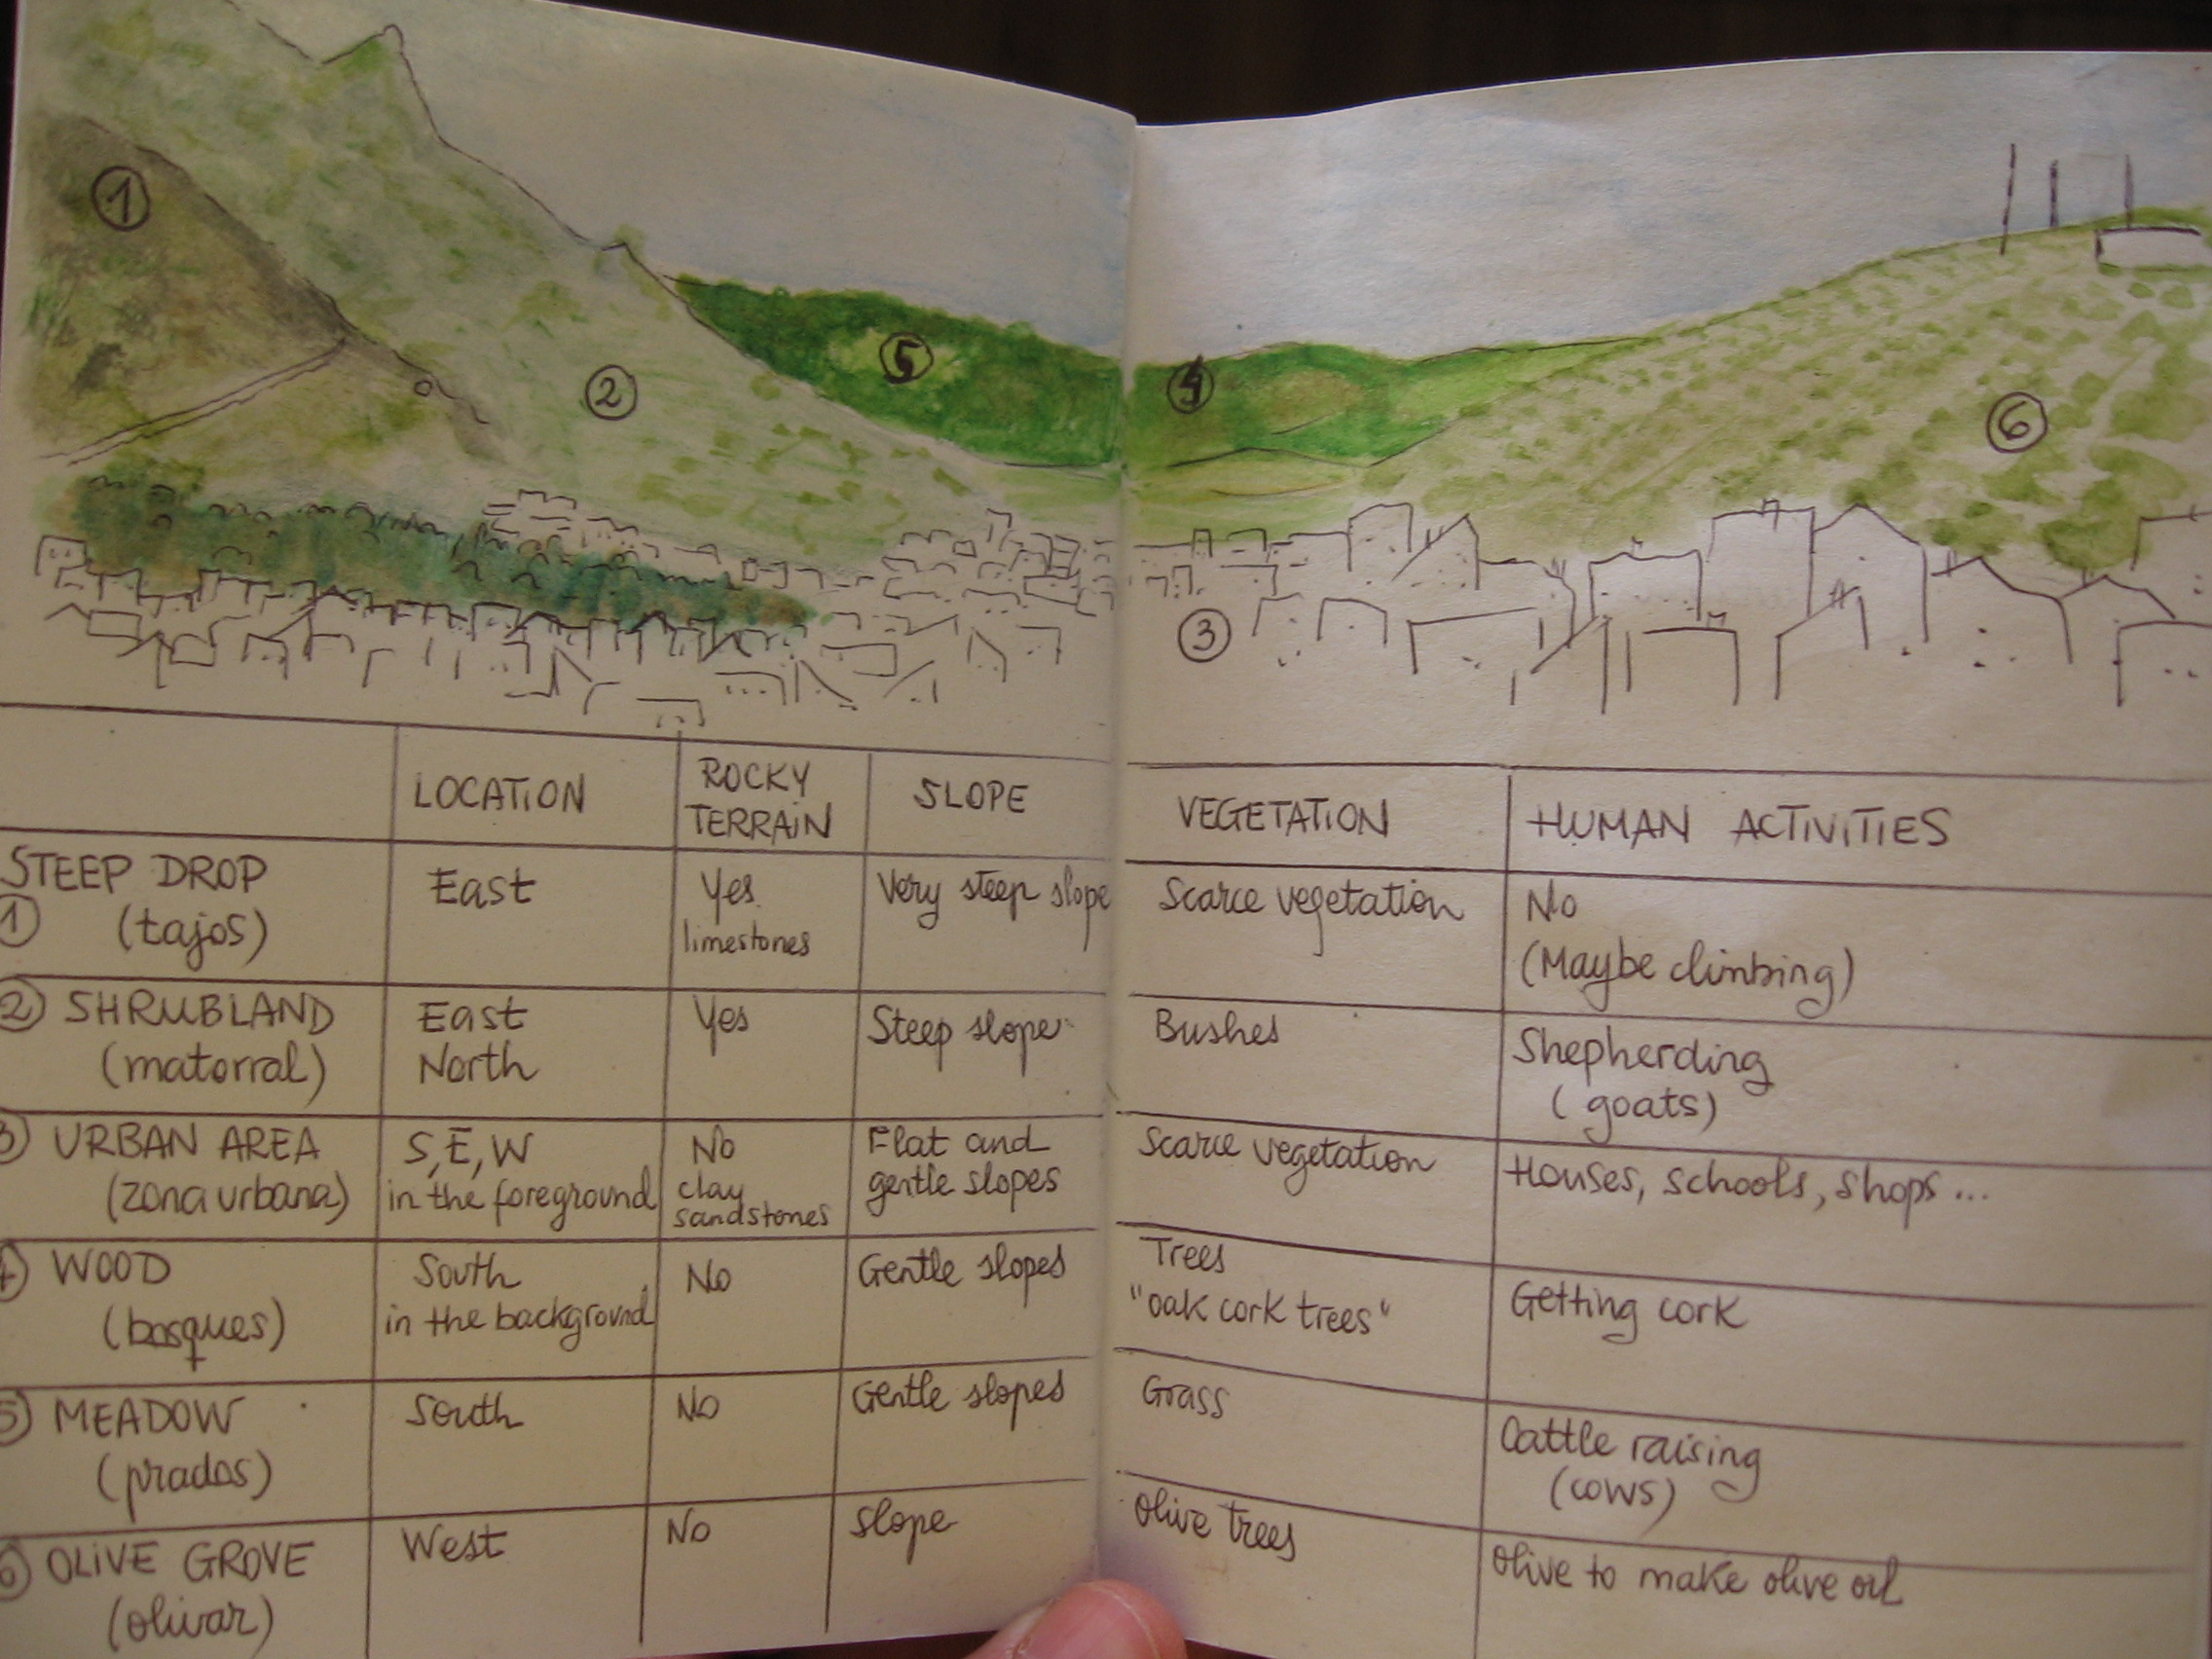 1
2
5
4
6
3
LOCATION
ROCKY TERRAIN
SLOPE
VEGETATION
HUMAN ACTIVITIES
STEEP DROP
1 (tajos)
East
Yes
limestones
Very steep slope
Scarce vegetation
No
(Maybe climbing)
2 SHRUBLAND
(matorral)
East
North
Yes
Steep slope
Bushes
Shepherding
(goats)
3 URBAN AREA
(zona urbana)
S, E, W
in the foreground
No
clay
sandstones
Flat and
gentle slopes
Scarce vegetation
Houses, schools, shops ...
4 WOOD
(bosques)
South
in the background
No
Gentle slopes
Trees
"oak cork trees"
Getting cork
5 MEADOW
(prados)
South
No
Gentle slopes
Grass
Cattle raising
(cows)
6 OLIVE GROVE
(olivar)
West
No
slope
Olive trees
Olive to make olive oil